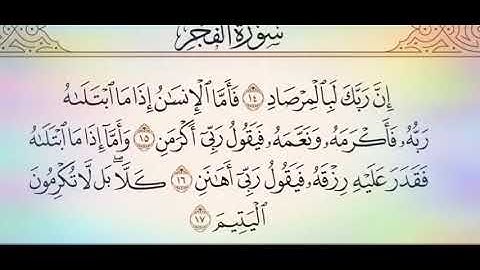 سورة الفجر
إِنَّ رَبَّكَ لَبِٱلْمِرْصَادِ ١٤ فَأَمَّا ٱلْإِنسَـٰنُ إِذَا مَا ٱبْتَلَىٰهُ
رَبُّهُۥ فَأَكْرَمَهُۥ وَنَعَّمَهُۥ فَيَقُولُ رَبِّىٓ أَكْرَمَنِ ١٥ وَأَمَّآ إِذَا مَا ٱبْتَلَىٰهُ
فَقَدَرَ عَلَيْهِ رِزْقَهُۥ فَيَقُولُ رَبِّىٓ أَهَـٰنَنِ ١٦ كَلَّا ۖ بَل لَّا تُكْرِمُونَ
ٱلْيَتِيمَ ١٧